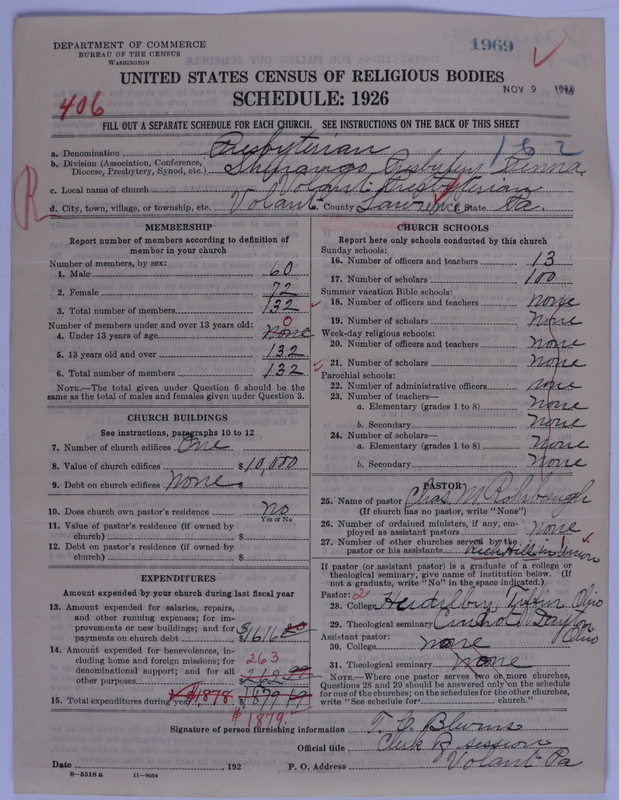 DEPARTMENT OF COMMERCE
BUREAU OF THE CENSUS
WASHINGTON
1969
UNITED STATES CENSUS OF RELIGIOUS BODIES
SCHEDULE: 1926
NOV 9 1926
406
FILL OUT A SEPARATE SCHEDULE FOR EACH CHURCH. SEE INSTRUCTIONS ON THE BACK OF THIS SHEET
162
a. Denomination Presbyterian
b. Division (Association, Conference, Diocese, Presbytery, Synod, etc.) Shenango Presbytery Penna
c. Local name of church Volant Presbyterian
R
d. City, town, village, or township, etc. Volant e. County Lawrence State Pa.
MEMBERSHIP
Report number of members according to definition of
member in your church
Number of members, by sex:
1. Male 60
2. Female 72
3. Total number of members 132
Number of members under and over 13 years old:
4. Under 13 years of age None 0
5. 13 years old and over 132
6. Total number of members 132
NOTE.—The total given under Question 6 should be
same as the total of males and females given under Question 3.
CHURCH BUILDINGS
See instructions, paragraphs 10 to 12
7. Number of church edifices One
8. Value of church edifices $10,000
9. Debt on church edifices None $
10. Does church own pastor's residence no
Yes or No
11. Value of pastor's residence (if owned by
church) $
12. Debt on pastor's residence (if owned by
church) $
EXPENDITURES
Amount expended by your church during last fiscal year
13. Amount expended for salaries, repairs,
and other running expenses; for im-
provements on new buildings; and for
payments on church debt $1616
14. Amount expended for benevolences, in-
cluding home and foreign missions; for
denominational support; and for all
other purposes 263
15. Total expenditures during year $1878 1879 19
$1879.
CHURCH SCHOOLS
Report here only schools conducted by this church
Sunday schools:
16. Number of officers and teachers 13
17. Number of scholars 100
Summer vacation Bible schools:
18. Number of officers and teachers none
19. Number of scholars None
Week-day religious schools:
20. Number of officers and teachers none
21. Number of scholars None
Parochial schools:
22. Number of administrative officers none
23. Number of teachers—
a. Elementary (grades 1 to 8) None
b. Secondary None
24. Number of scholars—
a. Elementary (grades 1 to 8) None
b. Secondary None
PASTOR
25. Name of pastor Chas M Rohrbaugh
(If church has no pastor, write "None")
26. Number of ordained ministers, if any, em-
ployed as assistant pastors none
27. Number of other churches served by the 1
pastor or his assistants Rich Hill
If pastor (or assistant pastor) is a graduate of a college or
theological seminary, give name of institution below. (If
not a graduate, write "No" in the space indicated.)
Pastor: 2
28. College Heidelberg, Tiffin Ohio
29. Theological seminary Central Dayton Ohio
Assistant pastor:
30. College none
31. Theological seminary none
NOTE.—Where one pastor serves two or more churches,
Questions 28 and 29 should be answered only on the schedule
for one of the churches; on the schedules for the other churches,
write "See schedule for church."
Signature of person furnishing information T. C. Blevins
Official title Clerk of session
Date , 192 P. O. Address Volant Pa
8—5518 a 11—9054